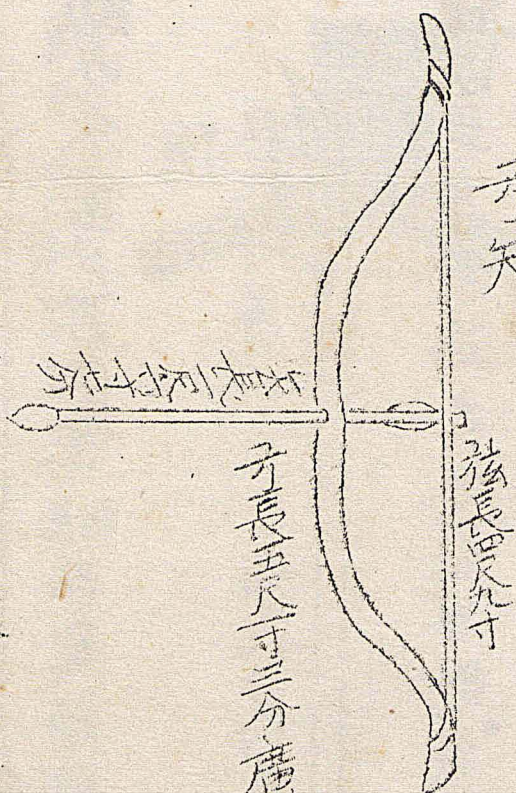 弓矢
弦長四尺九寸
弓長五尺一寸三分廣
矢長二尺六寸七分